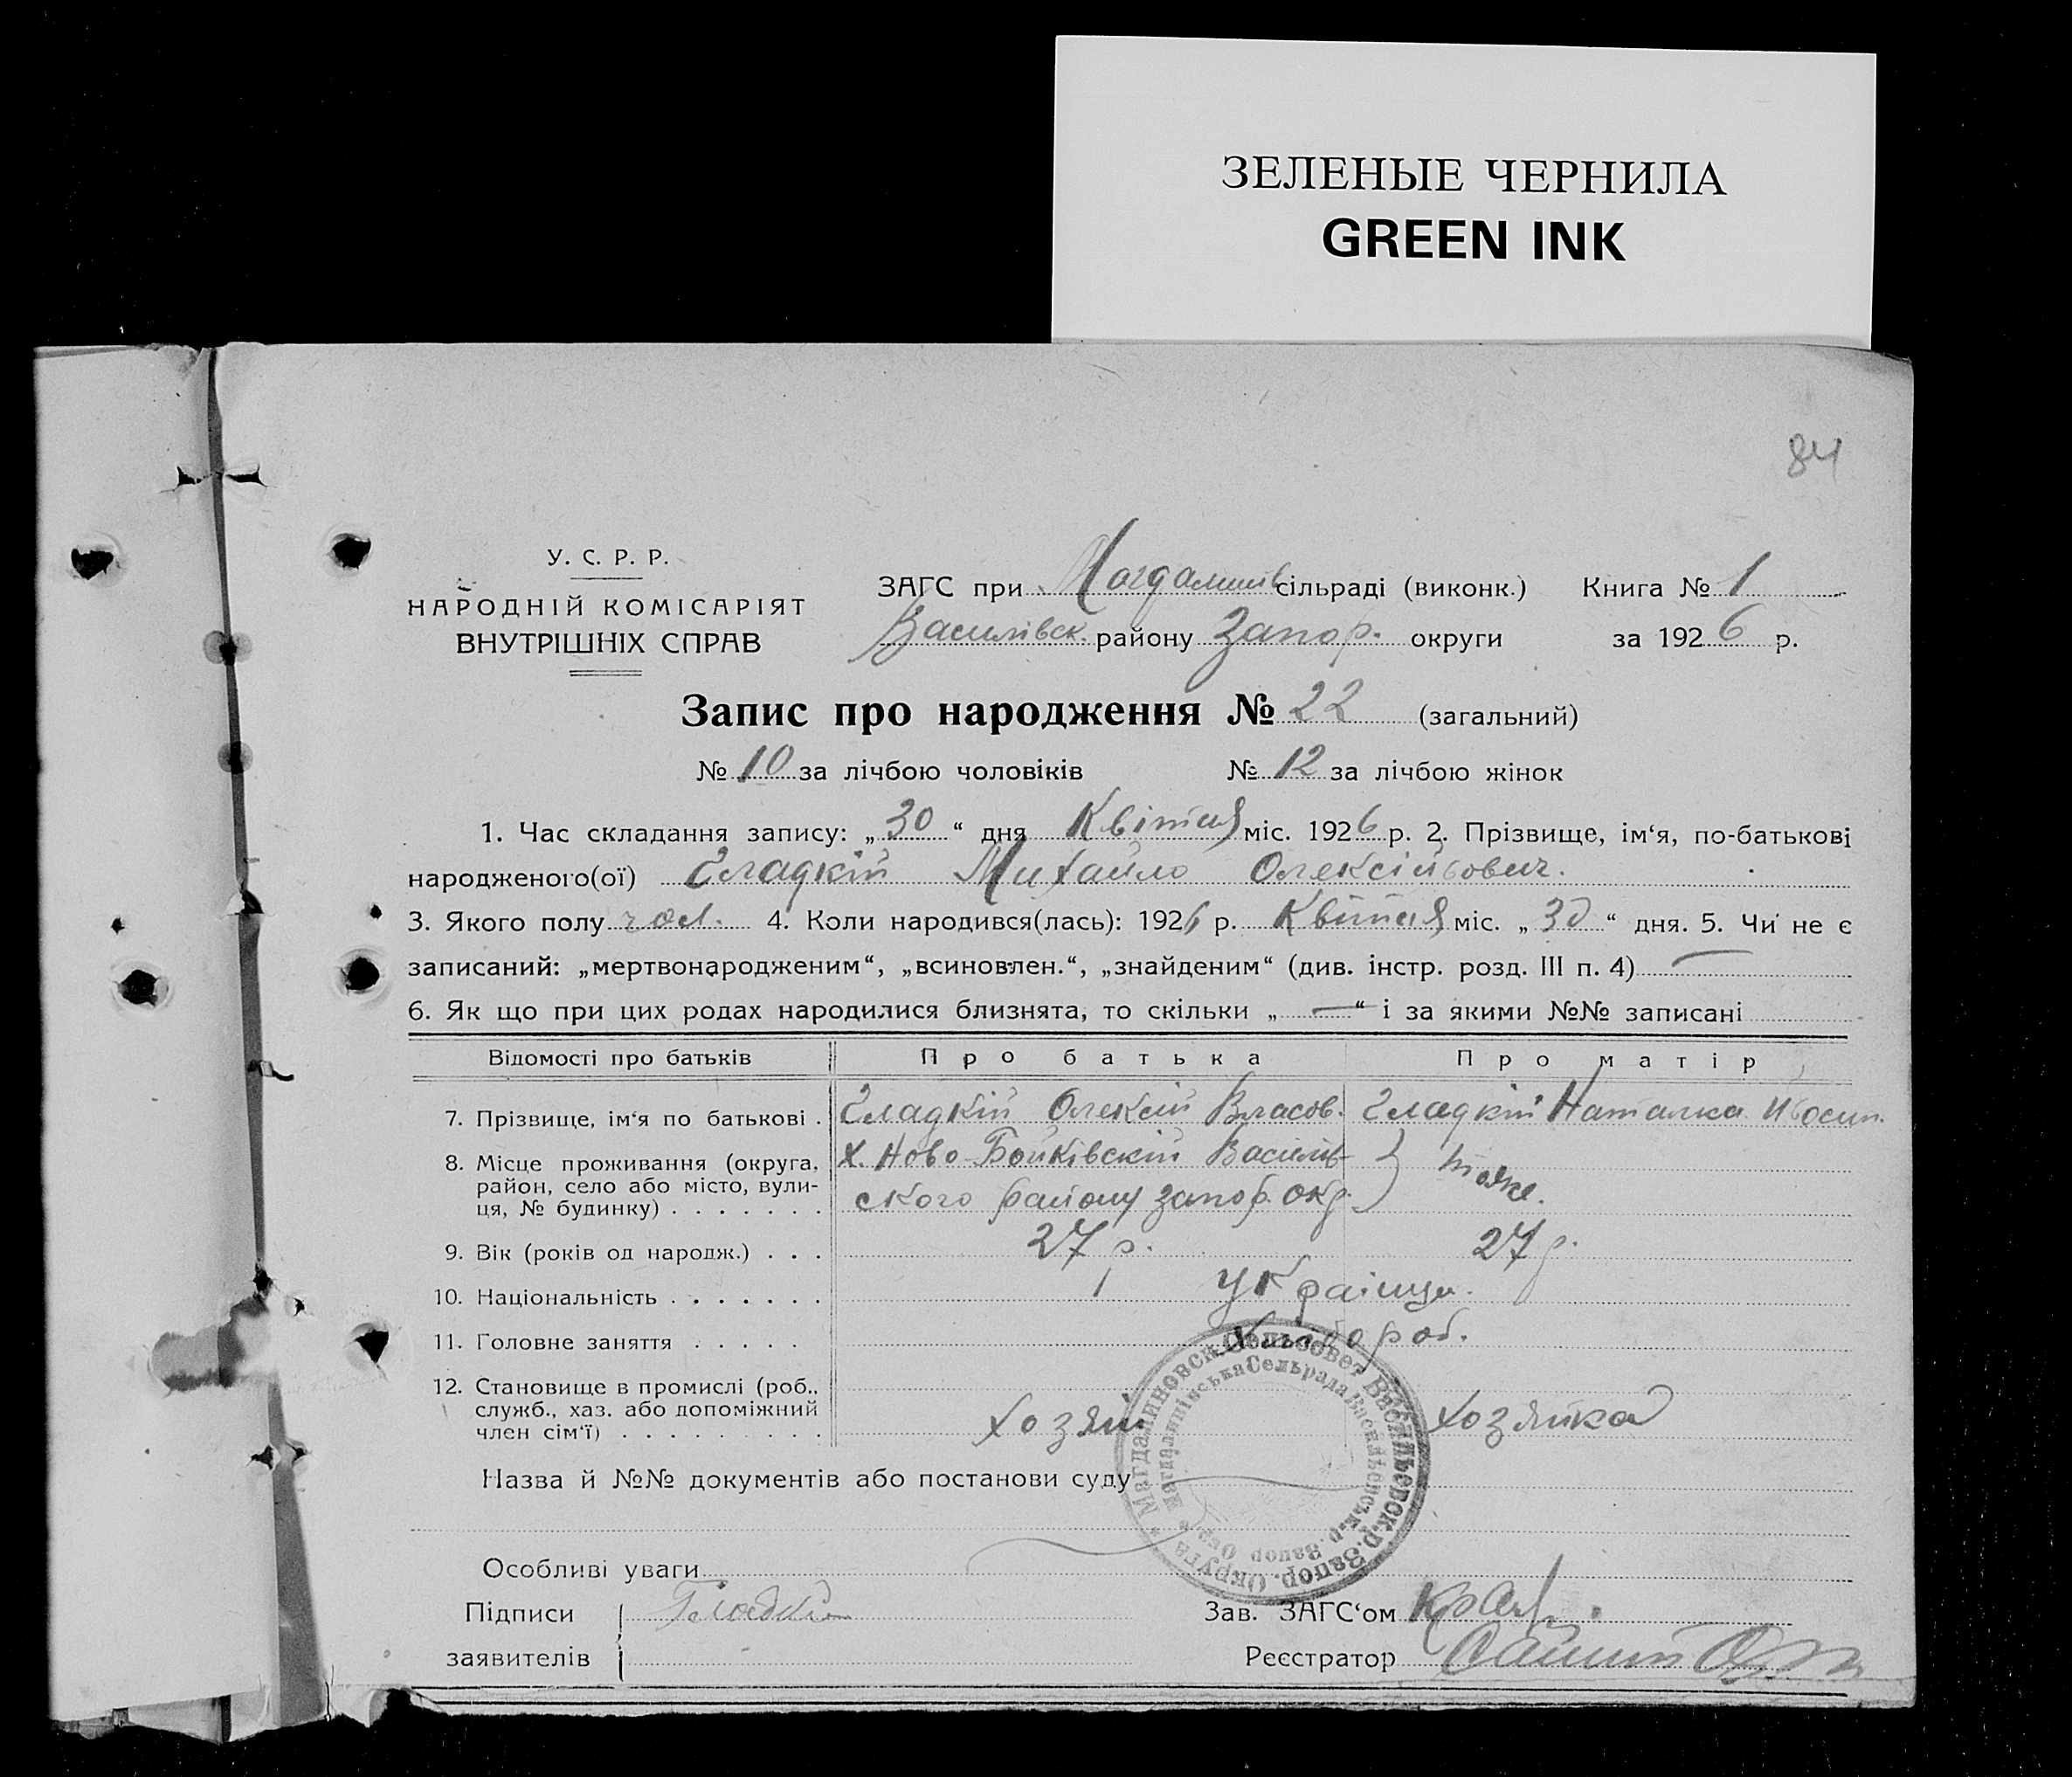 ЗЕЛЕНЫЕ ЧЕРНИЛА
GREEN INK
84
У. С. Р. Р.
НАРОДНІЙ КОМІСАРІЯТ
ВНУТРІШНІХ СПРАВ
ЗАГС при Магдалинів сільраді (виконк.) Книга № 1
Василівск. району Запор. округи за 1926 р.
Запис про народження № 22 (загальний)
№ 10 за лічбою чоловіків № 12 за лічбою жінок
1. Час складання запису: „30“ дня Квітня міс. 1926 р. 2. Прізвище, ім‘я, по-батькові
народженого(ої) Гладкій Михайло Олексійович.
3. Якого полу чол. 4. Коли народився(лась): 1926 р. Квітня міс. „30“ дня. 5. Чи не є
записаний: „мертвонародженим“, „всиновлен.“, „знайденим“ (див. інстр. розд. III п. 4) —
6. Як що при цих родах народилися близнята, то скільки „—“ і за якими №№ записані
Відомості про батьків Про батька Про матір
7. Прізвище, ім‘я по батькові . Гладкій Олексій Власов. Гладкій Наталка Йосип.
8. Місце проживання (округа, х. Ново-Бойківскій Василів-
район, село або місто, вули- тоже.
ця, № будинку) . . . . . . . ского району запор. окр.
9. Вік (років од народж.) . . . 27 р. 27 р.
10. Національність . . . . . . . україн
11. Головне заняття . . . . . Хлібороб.
12. Становище в промислі (роб.,
служб., хаз. або допоміжний
член сім‘ї) . . . . . . . . . хозяїн хозяйка
Назва й №№ документів або постанови суду
Магдалиновск. Сельсовет Васильевск. р. Запор. Округа
Магдалинівська Сельрада Васильевськ. р. Запор Окр.
Особливі уваги
Підписи Гладкий Зав. ЗАГС‘ом
заявителів Реєстратор